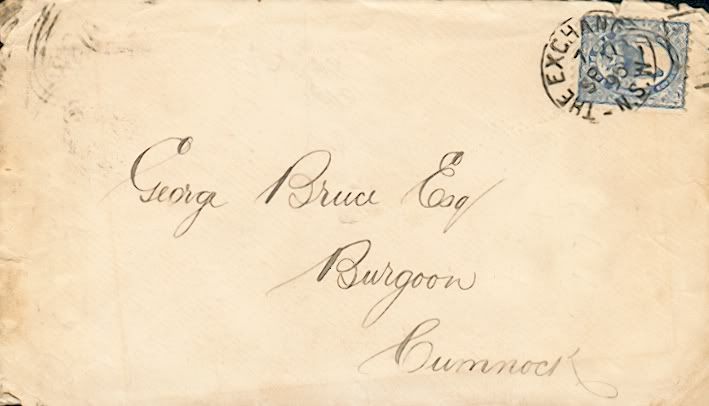 THE EXCHANG
N.S.W
95
George Bruce Esq
Burgoon
Cumnock